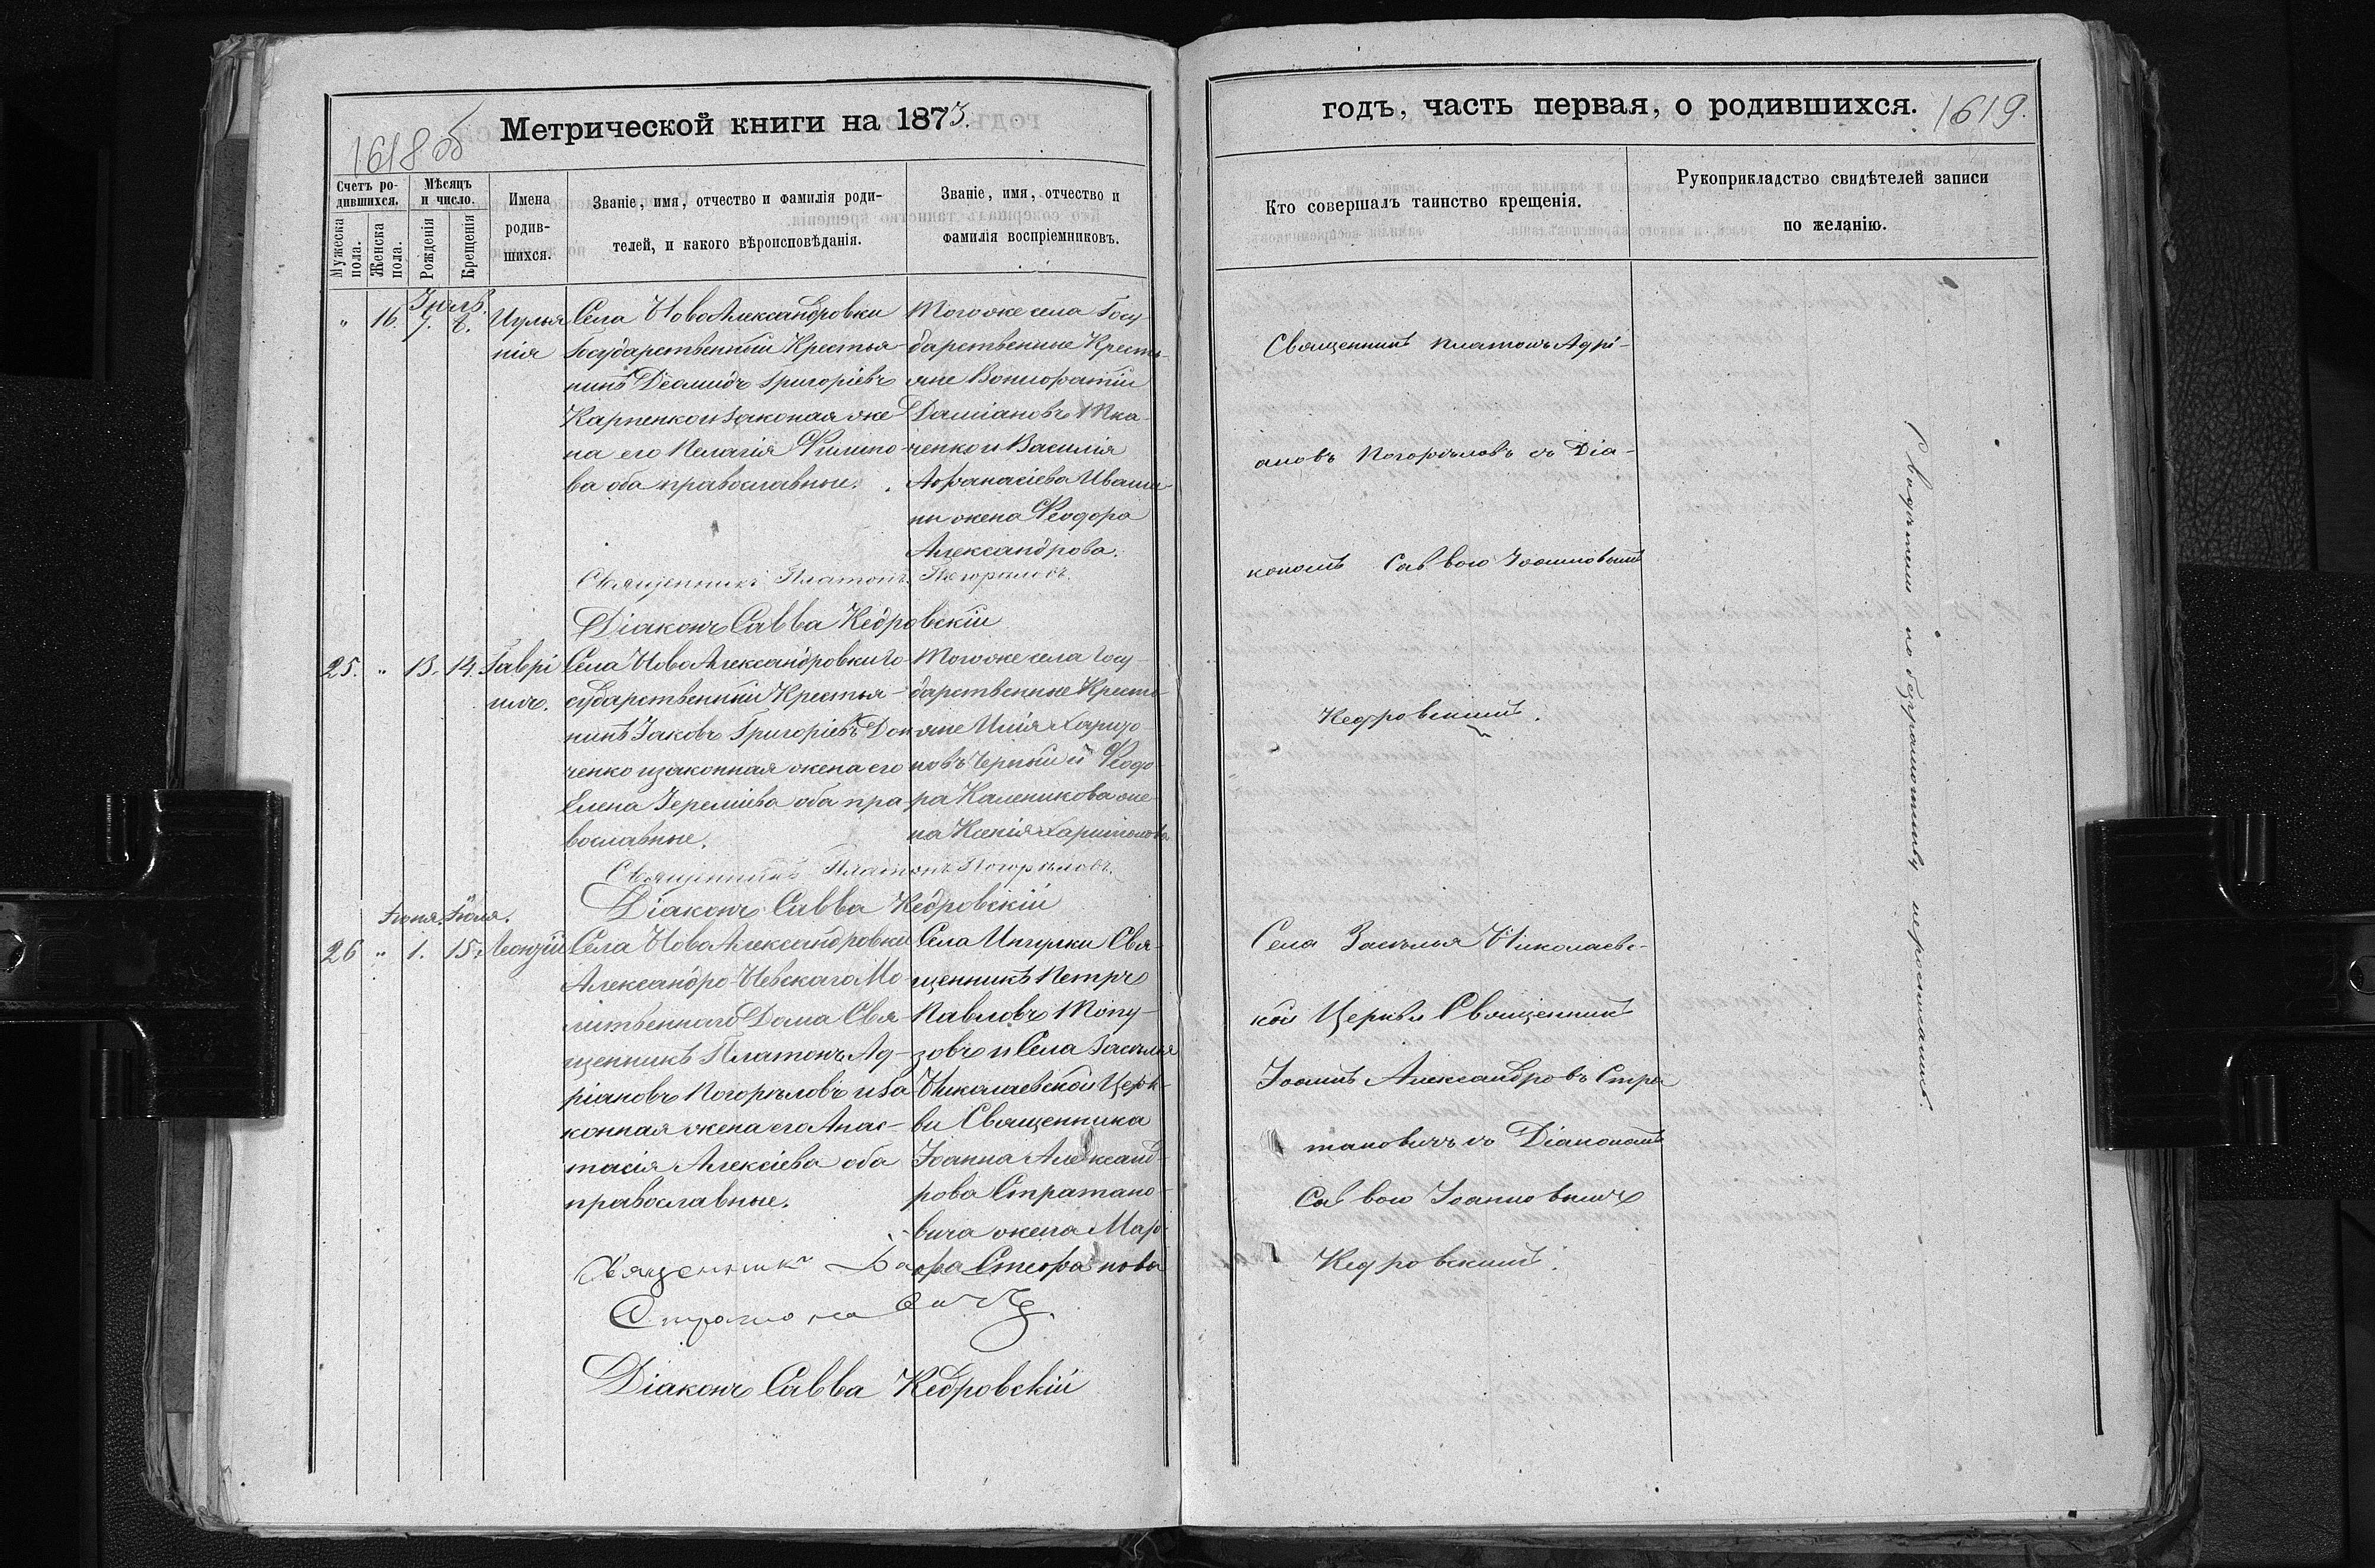 1618 об
Метрической книги на 1873.
Счетъ ро-
дившихся.
Мужеска
пола.
Женска
пола.
Мѣсяцъ
и число.
Рожденія
Крещенія
Имена
родив-
шихся.
Званіе, имя, отчество и фамилія роди-
телей, и какого вѣроисповѣданія.
Званіе, имя, отчество и
фамилія воспріемниковъ.
„ 16. 7. 8.
Иулья
нія
Села НовоАлександровки
Государственный Крестья-
нинъ Діомидъ Григоріевъ
Карпенко и законая же
на его Пелагія Филипо
ва оба православные.
Тогоже села Госу
дарственные Кресть-
яне Вонифатій
Даміановъ Тка-
ченко и Василія
Афанасіева Иваш
ны жена Феодора
Александрова.
Священникъ Платонъ Погорѣловъ.
Діаконъ Савва Кедровскій
25. „ 13. 14.
Гаврі
илъ.
Села НовоАлександровки Го-
сударственный Крестья-
нинъ Іаковъ Григоріевъ Дон
ченко изаконная жена его
Елена Іереміева оба пра
вославные.
Тогоже села Госу-
дарственные Кресть-
яне Илія Харито
новъ Черный и Феодо
ра Каленикова же
на Ксенія Харитонова
Священникъ Платонъ Погорѣловъ.
Діаконъ Савва Кедровскій
Іюня. Іюля.
26 „ 1. 15.
Леонтій
Села НовоАлександровки
Александро-Невскаго Мо-
литвеннаго Дома Свя-
щенникъ Платонъ Ад-
ріановъ Погорѣловъ иза
конная жена его Анас-
тасія Алексіева оба
православные.
Села Ингулки Свя-
щенникъ Петръ
Павловъ
и Села Засѣлья
Николаевской Церк-
ви Священника
Іоанна Александ-
рова Стратано-
вича жена Мар-
фа Стефанова
Священникъ
Стратановичъ.
Діаконъ Савва Кедровскій
годъ, часть первая, о родившихся.
1619.
Кто совершалъ таинство крещенія.
Рукоприкладство свидѣтелей записи
по желанію.
Священникъ Платонъ Адрі-
ановъ Погорѣловъ съ Діа-
кономъ Саввою Іоанновымъ
Кедровскимъ.
Села Засѣлья Николаевс-
кой Церкви Священникъ
Іоаннъ Александровъ Стра
тановичъ съ Діакономъ
Саввою Іоанновымъ
Кедровскимъ.
по безграмотству